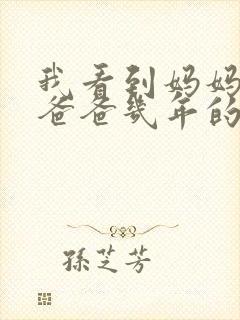 我看到妈妈
爸爸几年的
孫芝芳